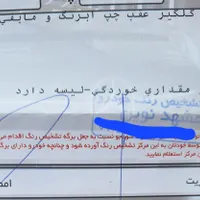 گلگیر عقب چپ ابرنگ و مابقی
مقداری خوردگی-لیسه دارد
تشخیص رنگ خودرو
مشهد نوین
نسبت به جعل برگه تشخیص رنگ اقدام می
توسط خودتان به این مرکز تشخیص رنگ آورده شود و چنانچه خودرو برای
مرکز استعلام نمایید